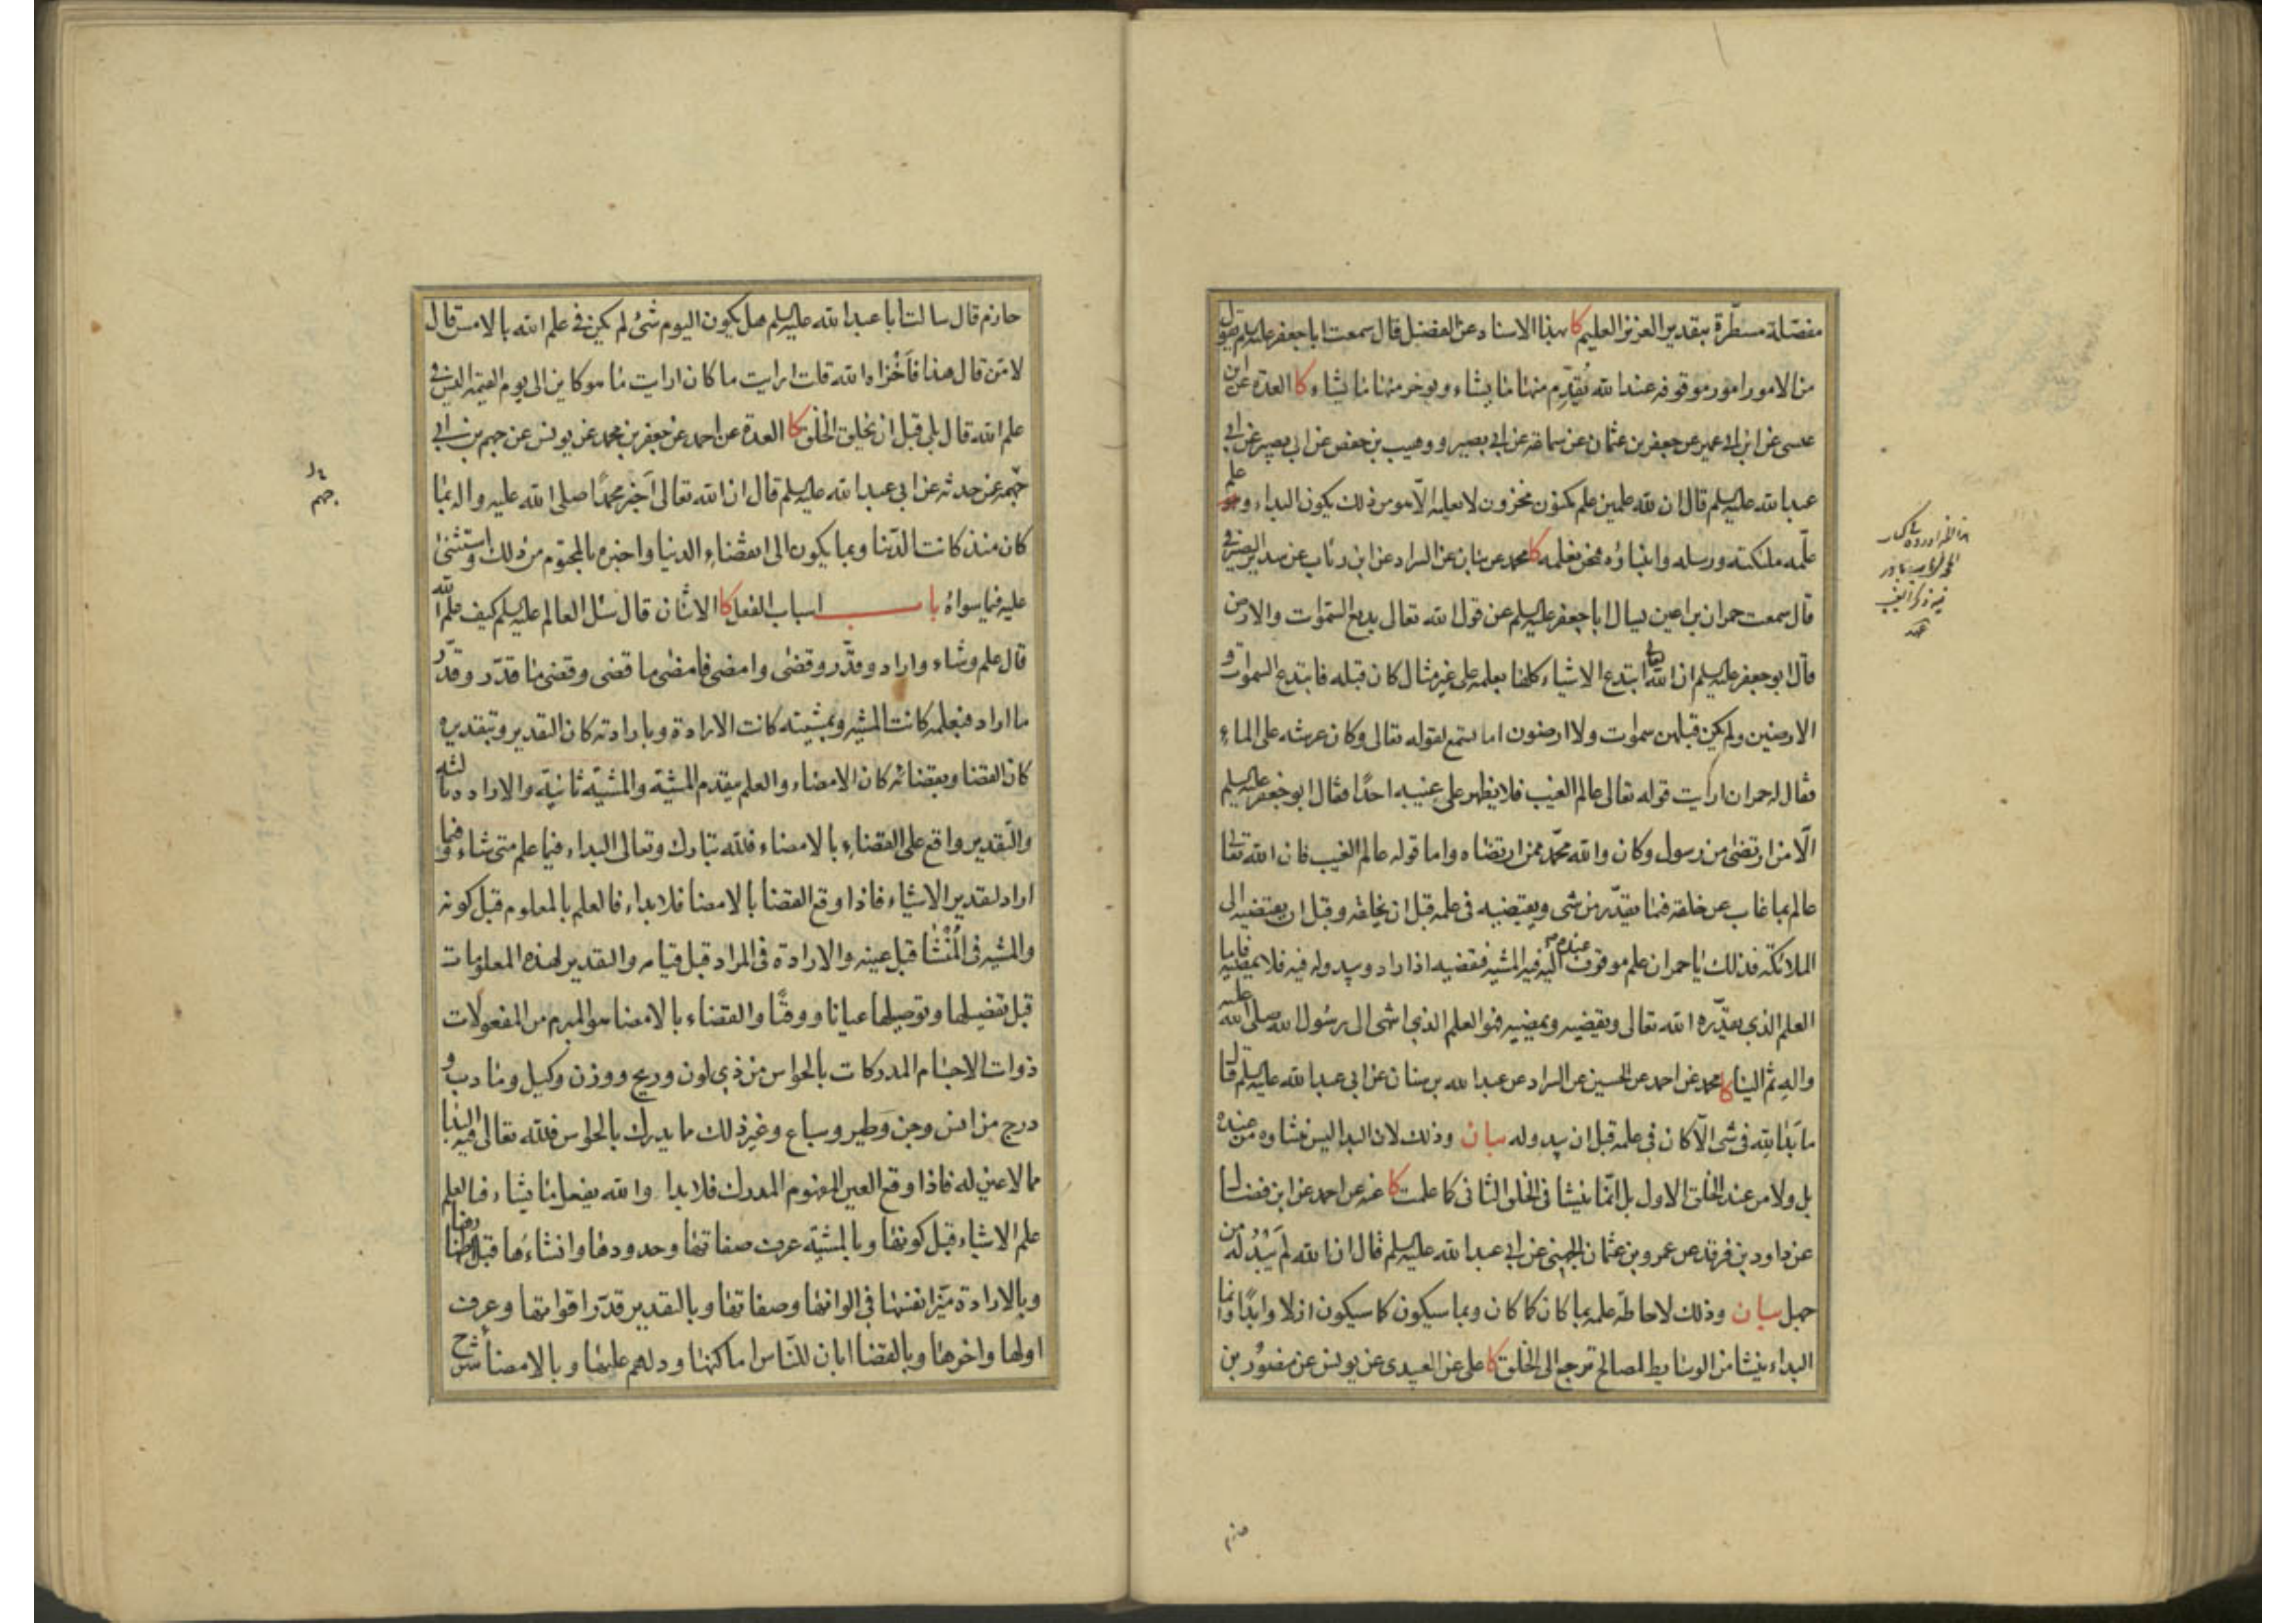 مفصّلة مسطّرة بتقدير العزيز العليم كا بهذا الاسناد عن الفضيل قال سمعت ابا جعفر عليه السلم يقول
من الامور امور موقوفه عند الله يُقدِّم منها ما يشاء ويوخر منها ما يشاء كا العدة عن ابن
عيسى عن ابن ابي عمير عن جعفر بن عثمان عن سماعة عن ابي بصير ووهيب بن حفص عن ابي بصير عن ابي
عبدا لله عليه السلم قال ان لله علمين علم مكنون مخزون لا يعلمه الّا هو من ذلك يكون البداء و علم
علّمه ملئكته ورسله وانبياؤه فنحن نعلمه كا محمد عن بنان عن السراد عن ابن رئاب عن سدير الصيرفي
قال سمعت حمران بن اعين يسال ابا جعفر عليه السلم عن قول الله تعالى بديع السموات والارض
قال ابو جعفر عليه السلم ان الله ابتدع الاشياء كلها بعلمه على غير مثال كان قبله فابتدع السموات و
الارضين ولم يكن قبلهن سموات ولا ارضون اما تسمع لقوله تعالى وكان عرشه على الماءِ
فقال له حمران ارايت قوله تعالى عالم الغيب فلا يظهر على غيبه احدًا فقال ابو جعفر عليه السلم
الّا من ارتضى من رسول وكان والله محمّد ممن ارتضاه واما قوله عالم الغيب فان الله تعالى
عالم بما غاب عن خلقه فيما يقدّر من شى ويقضيه فى علمه قبل ان يخلقه وقبل ان يقضيه الى
الملائكة فذلك يا حمران علم موقوف عنده اليه فيه المشيه فيقضيه اذا اراد ويبدو له فيه فلا يمضيه فاما
العلم الذي يقدّره الله تعالى ويقضيه ويمضيه فهو العلم الذي انتهى الى رسُول الله صلى الله عليه
واله ثم الينا كا محمد عن احمد عن الحسين عن السراد عن عبدا لله بن سنان عن ابي عبدا لله عليه السلم قال
ما بَدا لِلّه فى شى الّا كان فى علمه قبل ان يبدو له بيان وذلك لان البدا ليس منشاوه من عنده
بل ولا من عند الخلق الاول بل انّما ينشا فى الخلق الثانى كما علمت كا عنه عن احمد عن ابن فضال
عن داود بن فرقد عن عمرو بن عثمان الجهني عن ابي عبدا لله عليه السلم قال ان الله لَم يَبْدُ لَه من
جهل بيان وذلك لاحاطة علمه بما كان كما كان وبما سيكون كما سيكون ازلا وابدًا وانما
البداء ينشا من الوسايط لمصالح ترجع الى الخلق كا على عن العبيدى عن يونس عن منصور بن
حازم
حازم قال سالت ابا عبدا لله عليه السلم هل يكون اليوم شئ لم يكن في علم الله بالامس قال
لا مَن قال هذا فاَخْزاه الله قلت ارايت ما كان ارايت ما هو كاين الى يوم القيمه اليس في
علم الله قال بلى قبل ان يخلق الخلق كا العدة عن احمد عن جعفر بن محمد عن يونس عن جهم بن ابي
جهمه عن حدثه عن ابي عبدا لله عليه السلم قال ان الله تعالى اَخبر محمدًا صلى الله عليه واله بما
كان منذ كانت الدّنيا وبما يكون الى انقضاءِ الدنيا واخبره بالمحتوم من ذلك واستثنى
عليه فيما سواهُ باب اسباب الفعل كا الاثنان قال سئل العالم عليه السلم كيف علم الله
قال علم وشاء واراد وقدّر وقضى وامضى فامضى ما قضى وقضى ما قدّر وقدّر
ما اراد فبعلمه كانت المشيه وبمشيته كانت الارادة وبارادته كان التقدير وبتقديره
كان القضا وبقضائه كان الامضاء والعلم يتقدم المشيّة والمشيّة ثانيّة والارادة ثالثه
والتّقدير واقع على القضاءِ بالامضاء فلله تبارك وتعالى البداء فيما علم متى شاء وفيما
اراد لتقدير الاشياء فاذا وقع القضا بالامضا فلا بداء فالعلم بالمعلوم قبل كونه
والمشيه فى المُنْشا قبل عينه والارادة فى المراد قبل قيامه والتقدير لهذه المعلومات
قبل تفصيلها وتوصيلها عيانا ووقتًا والقضاء بالامضا هو المبرم من المفعولات
ذوات الاجسام المدركات بالحواس من ذي لون وريح ووزن وكيل وما دب و
درج من انس وجن وَطير وسباع وغير ذلك مما يدرك بالحواس فلله تعالى فيه البدا
مما لا عين له فاذا وقع العين المفهوم المدرك فلا بدا والله يفعل ما يشاء فبالعلم
علم الاشياء قبل كونها وبالمشيّة عرف صفاتها وحدودها وانشاءَها قبل اظهارها
وبالارادة ميّز انفسها في الوانها وصفاتها وبالتقدير قدّر اقواتها وعرف
اولها واخرها وبالقضا ابان للنّاس اماكنها ودلهم عليها وبالامضا شرح
جهم